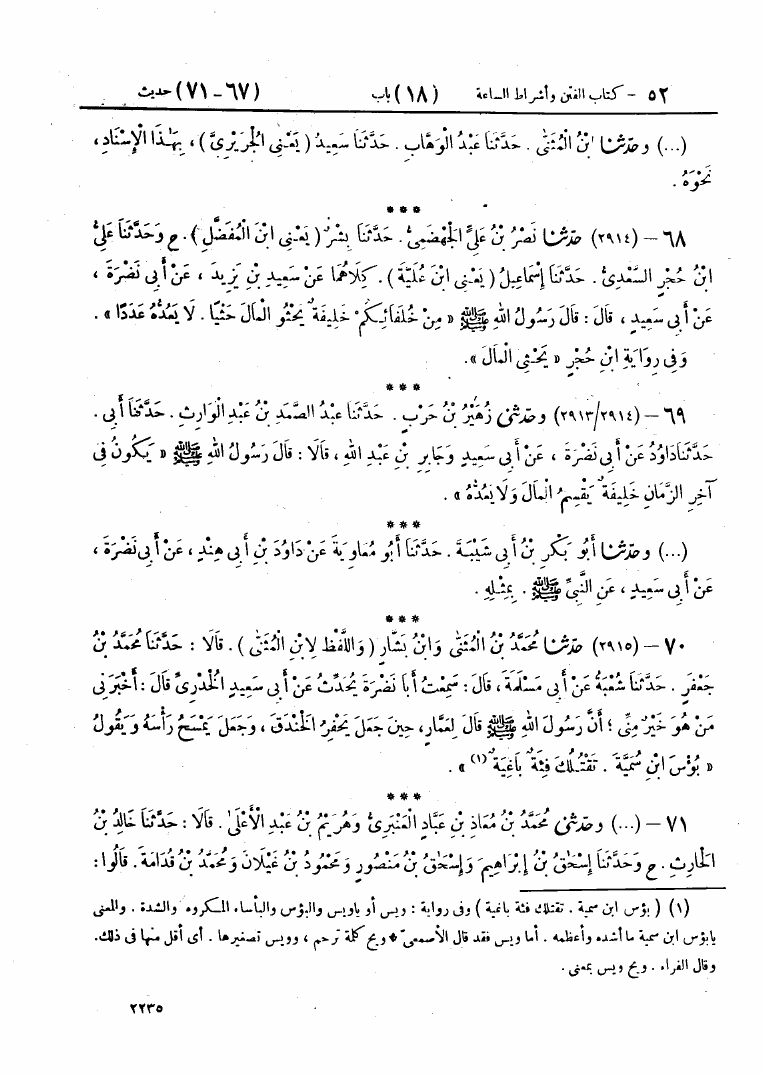 ٥٢ - كتاب الفتن وأشراط الساعة (١٨) باب (٦٧ - ٧١) حديث
(...) وحَدَّثَنَا ابْنُ الْمُثَنَّى . حَدَّثَنَا عَبْدُ الْوَهَّابِ . حَدَّثَنَا سَعِيدٌ ( يَعْنِي الْجُرَيْرِيَّ ) ، بِهَٰذَا الْإِسْنَادِ ،
نَحْوَهُ .
***
٦٨ - (٢٩١٤) حَدَّثَنَا نَصْرُ بْنُ عَلِيٍّ الْجَهْضَمِيُّ . حَدَّثَنَا بِشْرٌ ( يَعْنِي ابْنَ الْمُفَضَّلِ ) . ح وَحَدَّثَنَا عَلِيُّ
ابْنُ حُجْرٍ السَّعْدِيُّ . حَدَّثَنَا إِسْمَاعِيلُ ( يَعْنِي ابْنَ عُلَيَّةَ ) . كِلَاهُمَا عَنْ سَعِيدِ بْنِ يَزِيدَ ، عَنْ أَبِي نَضْرَةَ ،
عَنْ أَبِي سَعِيدٍ ، قَالَ : قَالَ رَسُولُ اللهِ ﷺ « مِنْ خُلَفَائِكُمْ خَلِيفَةٌ يَحْثُو الْمَالَ حَثْيًا . لَا يَعُدُّهُ عَدَدًا » .
وَفِي رِوَايَةِ ابْنِ حُجْرٍ « يَحْثِي الْمَالَ » .
***
٦٩ - (٢٩١٣/٢٩١٤) وحَدَّثَنِي زُهَيْرُ بْنُ حَرْبٍ . حَدَّثَنَا عَبْدُ الصَّمَدِ بْنُ عَبْدِ الْوَارِثِ . حَدَّثَنَا أَبِي .
حَدَّثَنَا دَاوُدُ عَنْ أَبِي نَضْرَةَ ، عَنْ أَبِي سَعِيدٍ وَجَابِرِ بْنِ عَبْدِ اللهِ ، قَالَا : قَالَ رَسُولُ اللهِ ﷺ « يَكُونُ فِي
آخِرِ الزَّمَانِ خَلِيفَةٌ يَقْسِمُ الْمَالَ وَلَا يَعُدُّهُ » .
***
(...) وحَدَّثَنَا أَبُو بَكْرِ بْنُ أَبِي شَيْبَةَ . حَدَّثَنَا أَبُو مُعَاوِيَةَ عَنْ دَاوُدَ بْنِ أَبِي هِنْدٍ ، عَنْ أَبِي نَضْرَةَ ،
عَنْ أَبِي سَعِيدٍ ، عَنِ النَّبِيِّ ﷺ . بِمِثْلِهِ .
***
٧٠ - (٢٩١٥) حَدَّثَنَا مُحَمَّدُ بْنُ الْمُثَنَّى وَابْنُ بَشَّارٍ ( وَاللَّفْظُ لِابْنِ الْمُثَنَّى ) . قَالَا : حَدَّثَنَا مُحَمَّدُ بْنُ
جَعْفَرٍ . حَدَّثَنَا شُعْبَةُ عَنْ أَبِي مَسْلَمَةَ ، قَالَ : سَمِعْتُ أَبَا نَضْرَةَ يُحَدِّثُ عَنْ أَبِي سَعِيدٍ الْخُدْرِيِّ قَالَ : أَخْبَرَنِي
مَنْ هُوَ خَيْرٌ مِنِّي ؛ أَنَّ رَسُولَ اللهِ ﷺ قَالَ لِعَمَّارٍ ، حِينَ جَعَلَ يَحْفِرُ الْخَنْدَقَ ، وَجَعَلَ يَمْسَحُ رَأْسَهُ وَيَقُولُ
« بُؤْسَ ابْنِ سُمَيَّةَ . تَقْتُلُكَ فِئَةٌ بَاغِيَةٌ (١) » .
***
٧١ - (...) وحَدَّثَنِي مُحَمَّدُ بْنُ مُعَاذِ بْنِ عَبَّادٍ الْعَنْبَرِيُّ وَهُرَيْمُ بْنُ عَبْدِ الْأَعْلَىٰ . قَالَا : حَدَّثَنَا خَالِدُ بْنُ
الْحَارِثِ . ح وَحَدَّثَنَا إِسْحَٰقُ بْنُ إِبْرَاهِيمَ وَإِسْحَٰقُ بْنُ مَنْصُورٍ وَمَحْمُودُ بْنُ غَيْلَانَ وَمُحَمَّدُ بْنُ قُدَامَةَ . قَالُوا :
(١) ( بؤس ابن سمية . تقتلك فئة باغية ) وفى رواية : ويس أو ياويس والبؤس والبأساء المكروه والشدة . والمعنى
يابؤس ابن سمية ما أشده وأعظمه . أما ويس فقد قال الأصمعىّ * ويح كلمة ترحم ، وويس تصغيرها . أى أقل منها فى ذلك.
وقال الفراء . ويح ويس بمعنى .
٢٢٣٥